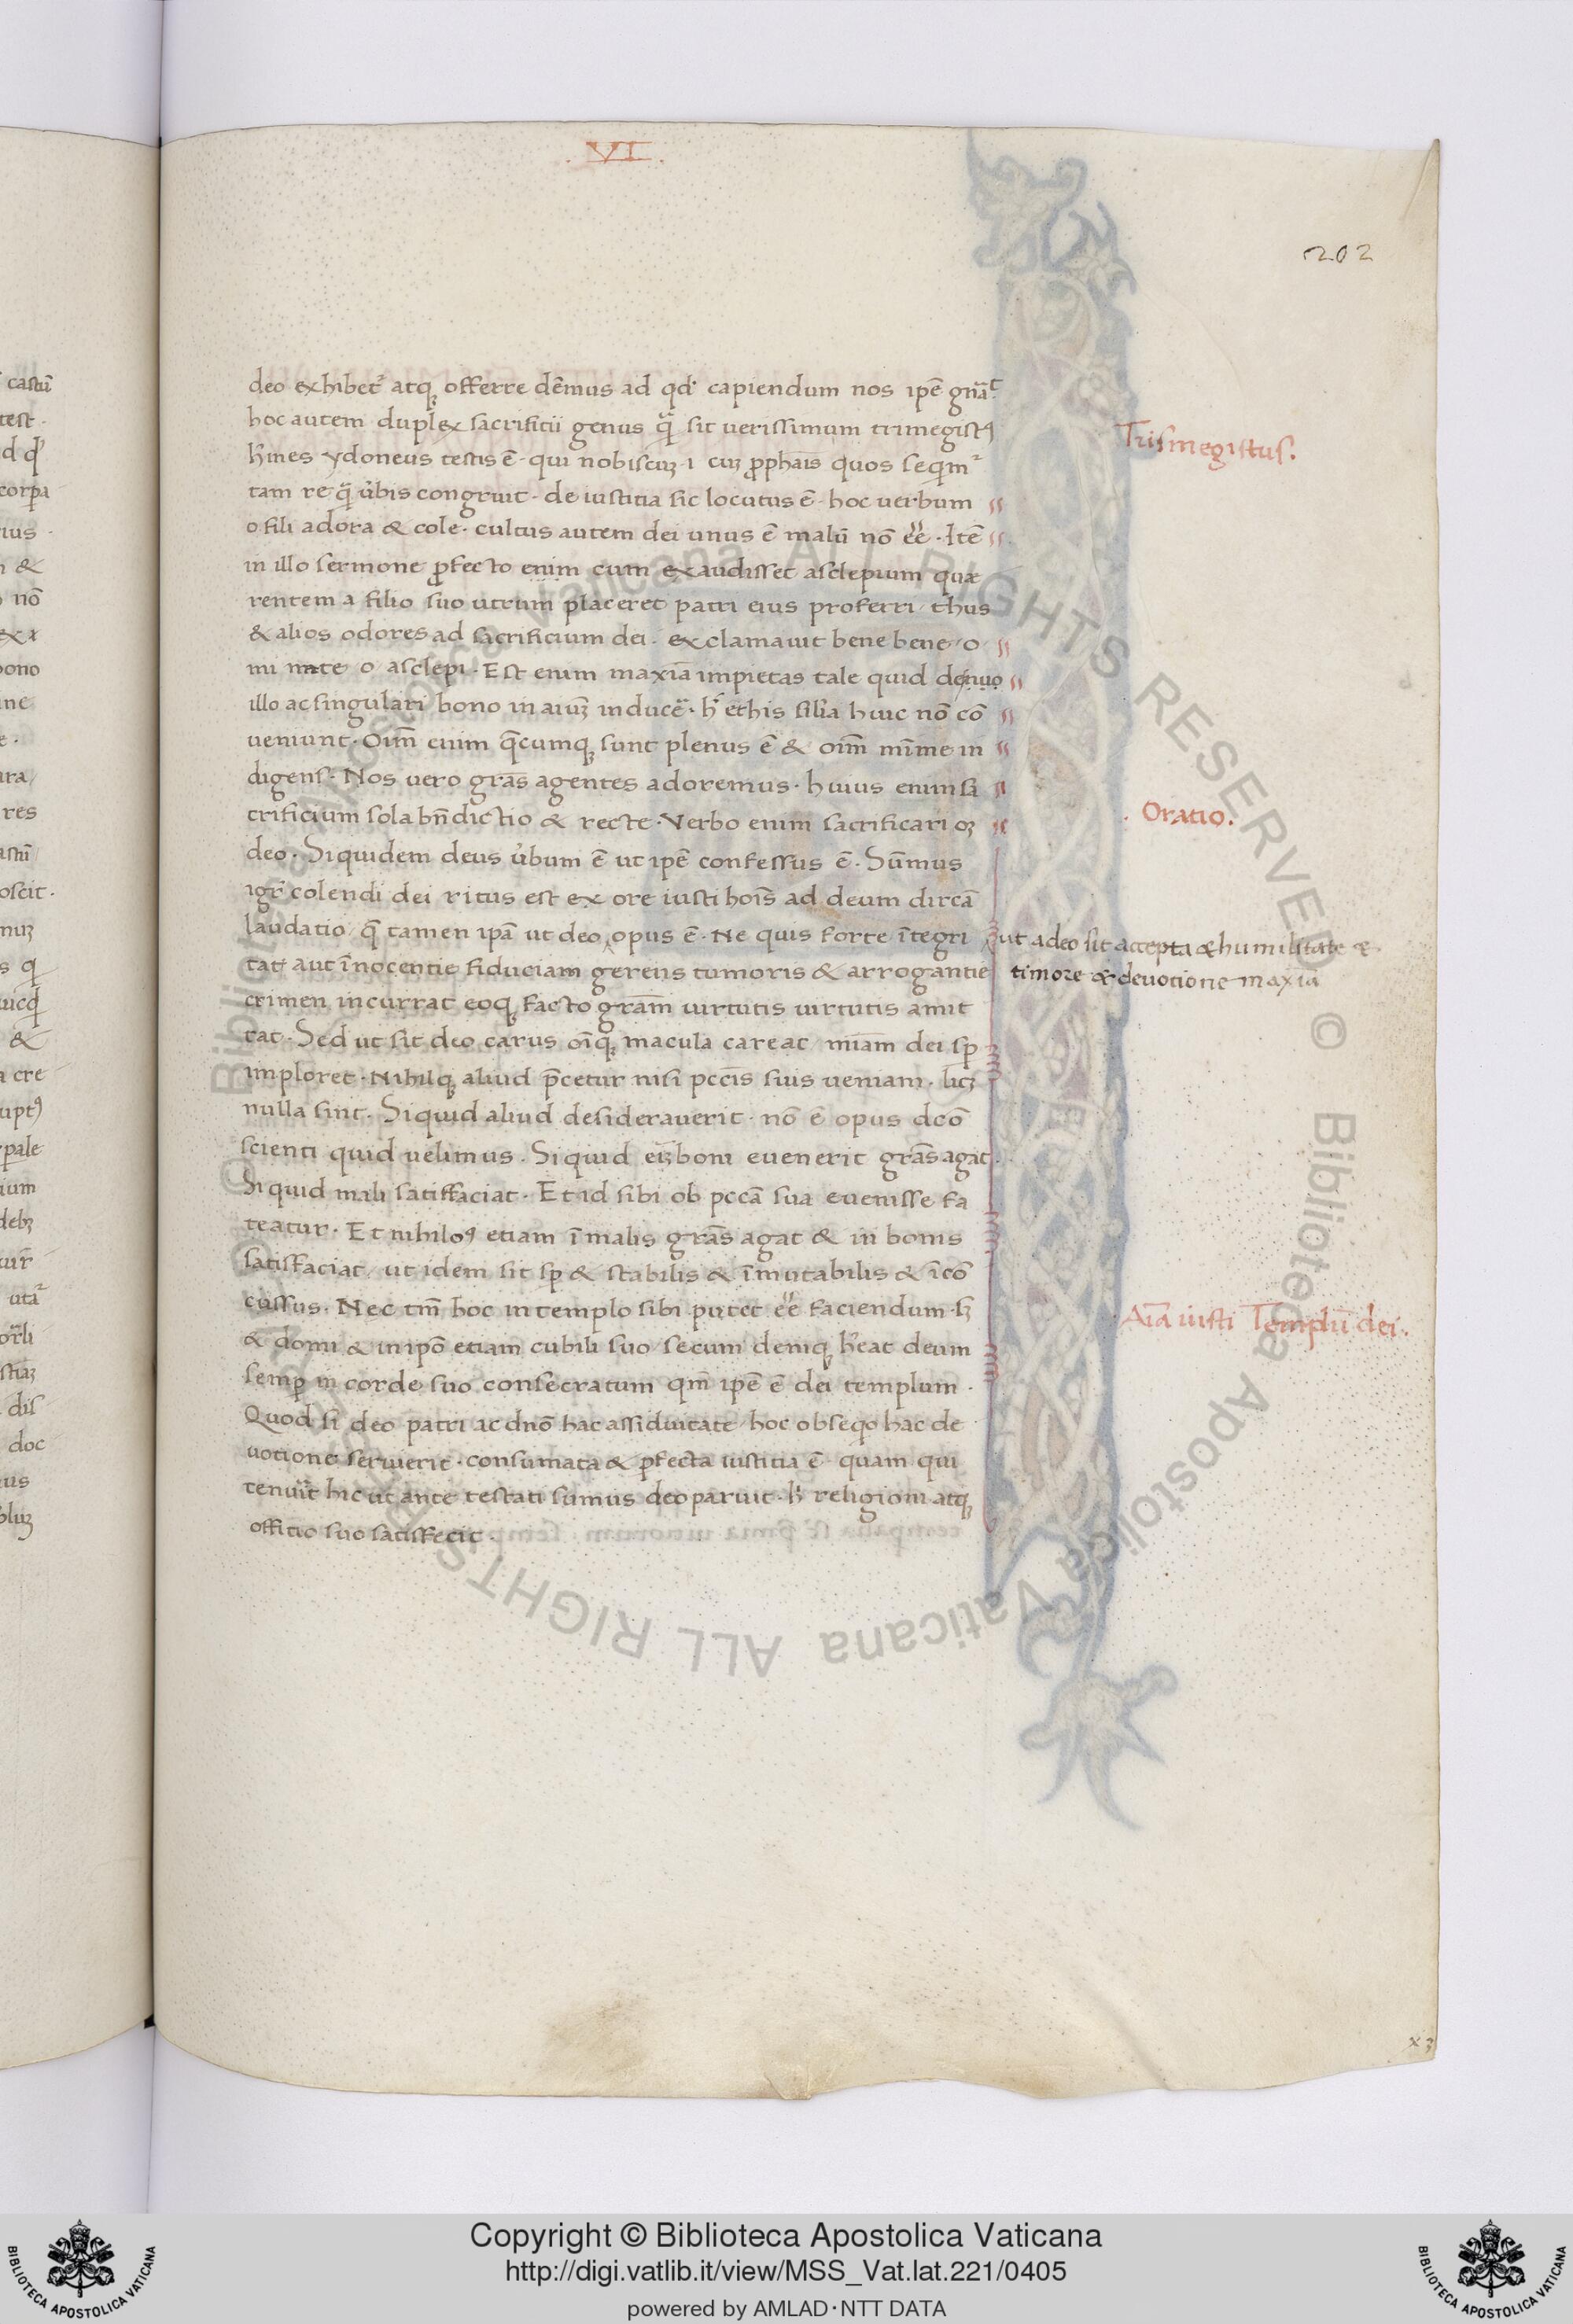 . VI .
202
deo exhibet᷑ atq; offerre dēmus ad qd' capiendum nos ipē gnāt
hoc autem duplex sacrificii genus q̄ sit verissimum trimegistꝰ
hm̄es ydoneus testis ē · qui nobiscuʒ · i cuʒ ꝓphāis quos seqim᷑
tam re q̄ ūbis congruit · de iustitia sic locutus ē · hoc uerbum
o fili adora & cole · cultus autem dei unus ē malū nō ēē · Itē
in illo sermone ꝑfecto enim cum exaudisset asclepium quæ
rentem a filio suo utrum placeret patri eius proferri / thus
& alios odores ad sacrificium dei · exclamauit bene bene / o
mi nate o / asclepi · Est enim maxīa impietas tale quid denuo
illo ac singulari bono in aiuʒ inducē · h' ethis sil'ia huic nō cō
ueniunt · Oīm enim q̄cumq; sunt plenus ē & oīm mīme in
digens · Nos uero grās agentes adoremus · huius enim sa
crificium sola bn̄dictio & recte · Verbo enim sacrificari oʒ
deo · Siquidem deus ūbum ē ut ipē confessus ē · Sūmus
igr̄ colendi dei ritus est ex ore iusti hoīs ad deum dircā
laudatio / q̄ tamen ipā ut deo opus ē · Ne quis forte ītegri
tat aut īnocentie fiduciam gerens tumoris & arrogantie
crimen incurrat eoq; facto grām uirtutis uirtutis amit
tat · Sed ut sit deo carus oīq; macula careat / mīam dei sꝑ
imploret · Nihilq; aliud p̄cetur nisi pccīs suis ueniam · licʒ
nulla sint · Siquid aliud desiderauerit · nō ē opus dcō
scienti quid uelimus · Siquid eiʒ boni euenerit grās agat ·
Siquid mali satisfaciat · Et id sibi ob pccā sua euenisse fa
teatur · Et nihiloꝰ etiam ī malis grās agat & in bonis
satisfaciat / ut idem sit sꝑ & stabilis & īmutabilis & īcō
cussus · Nec tm̄ hoc in templo sibi putet ēē faciendum · sʒ
& domi & in ipō etiam cubili suo / secum deniq; h'eat deum
semꝑ in corde suo consecratum qm̄ ipē ē dei templum ·
Quod si deo patri ac dnō hac assiduitate / hoc obseqo hac de
uotione seruierit · consumata & ꝑfecta iustitia ē quam qui
tenuīt hic ut ante testati sumus deo paruit · h' religioni atq;
offitio suo satisfecit ·
Trismegistus.
. Oratio.
ut a deo sit accepta & humilitate &
timore & deuotione maxīa
Aīa iusti Templū dei.
x 3
Copyright © Biblioteca Apostolica Vaticana
http://digi.vatlib.it/view/MSS_Vat.lat.221/0405
powered by AMLAD · NTT DATA
BIBLIOTECA APOSTOLICA VATICANA
BIBLIOTECA APOSTOLICA VATICANA